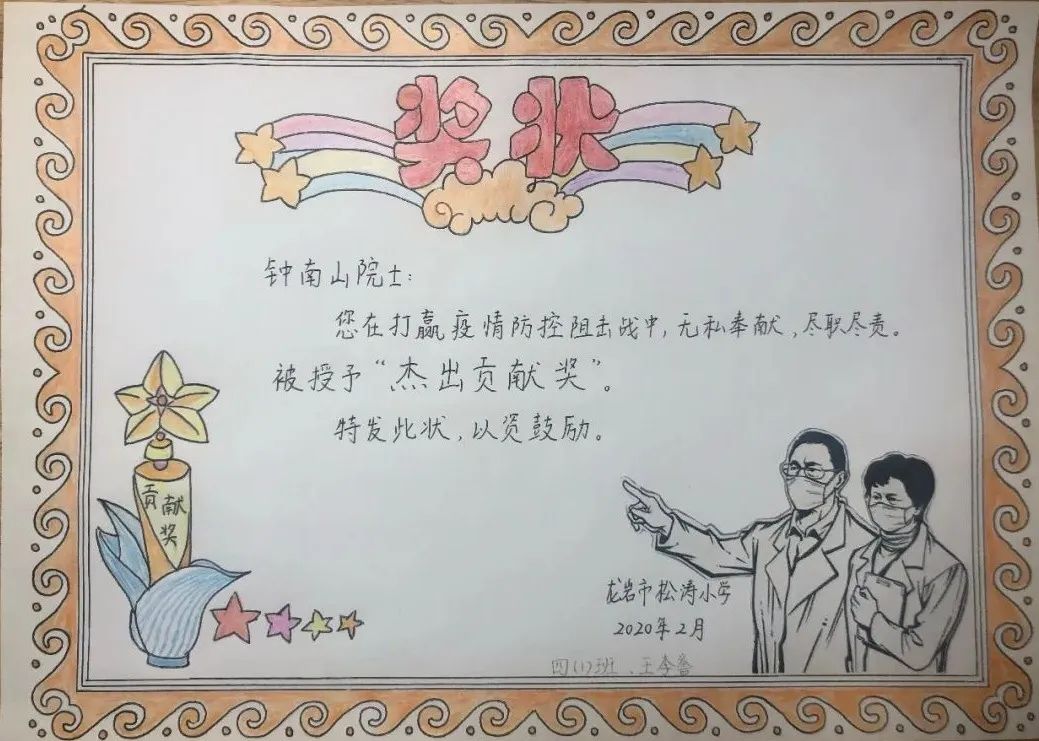 奖状
钟南山院士:
您在打赢疫情防控阻击战中,无私奉献,尽职尽责。
被授予“杰出贡献奖”。
特发此状,以资鼓励。
贡献
奖
龙岩市松涛小学
2020年2月
四(1)班、王李